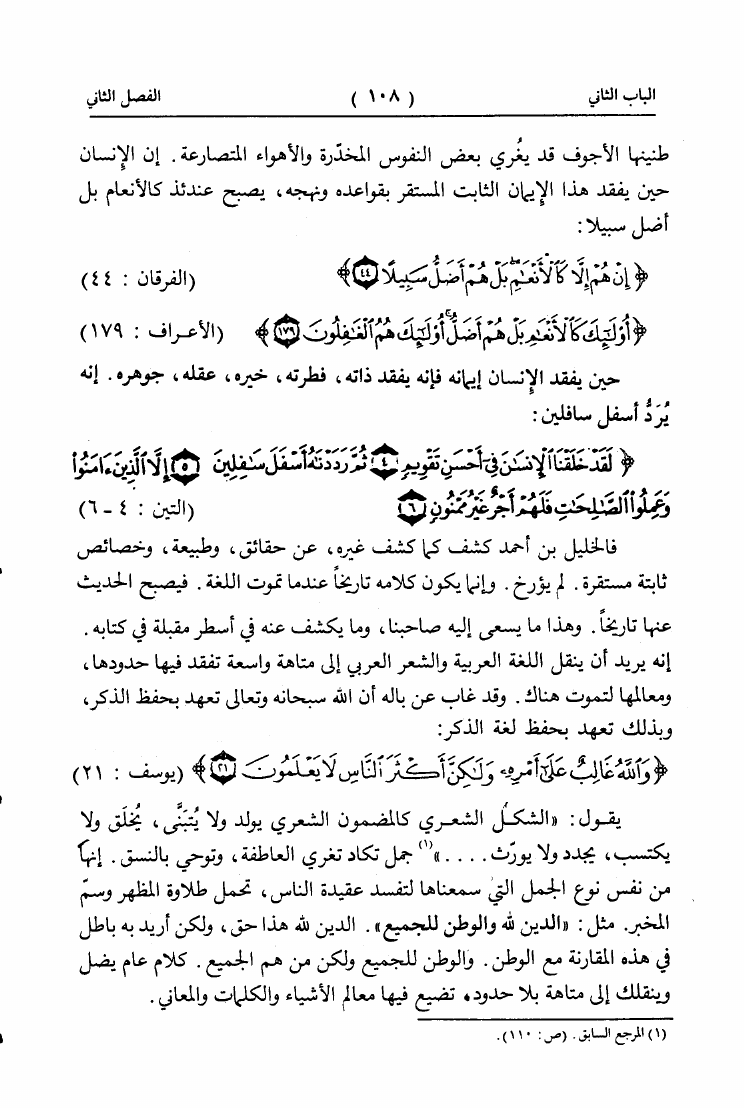 الباب الثاني ( ١٠٨ ) الفصل الثاني
طنينها الأجوف قد يغُري بعض النفوس المخدّرة والأهواء المتصارعة. إن الإنسان
حين يفقد هذا الإيمان الثابت المستقر بقواعده ونهجه، يصبح عندئذ كالأنعام بل
أضل سبيلا:
﴿ إِنْ هُمْ إِلَّا كَالْأَنْعَٰمِ ۖ بَلْ هُمْ أَضَلُّ سَبِيلًا ٤٤ ﴾ (الفرقان : ٤٤)
﴿ أُوْلَٰٓئِكَ كَالْأَنْعَٰمِ بَلْ هُمْ أَضَلُّ ۚ أُوْلَٰٓئِكَ هُمُ الْغَٰفِلُونَ ١٧٩ ﴾ (الأعراف : ١٧٩)
حين يفقد الإنسان إيمانه فإنه يفقد ذاته، فطرته، خيره، عقله، جوهره. إنه
يُرَدُّ أسفل سافلين:
﴿ لَقَدْ خَلَقْنَا الْإِنسَٰنَ فِىٓ أَحْسَنِ تَقْوِيمٍ ٤ ثُمَّ رَدَدْنَٰهُ أَسْفَلَ سَٰفِلِينَ ٥ إِلَّا الَّذِينَ ءَامَنُوا۟
وَعَمِلُوا۟ الصَّٰلِحَٰتِ فَلَهُمْ أَجْرٌ غَيْرُ مَمْنُونٍ ٦ (التين : ٤ - ٦)
فالخليل بن أحمد كشف كما كشف غيره، عن حقائق، وطبيعة، وخصائص
ثابتة مستقرة. لم يؤرخ. وإنما يكون كلامه تاريخاً عندما تموت اللغة. فيصبح الحديث
عنها تاريخاً. وهذا ما يسعى إليه صاحبنا، وما يكشف عنه في أسطر مقبلة في كتابه.
إنه يريد أن ينقل اللغة العربية والشعر العربي إلى متاهة واسعة تفقد فيها حدودها،
ومعالمها لتموت هناك. وقد غاب عن باله أن الله سبحانه وتعالى تعهد بحفظ الذكر،
وبذلك تعهد بحفظ لغة الذكر:
﴿ وَاللَّهُ غَالِبٌ عَلَىٰٓ أَمْرِهِۦ وَلَٰكِنَّ أَكْثَرَ النَّاسِ لَا يَعْلَمُونَ ٢١ ﴾ (يوسف : ٢١)
يقول: «الشكل الشعري كالمضمون الشعري يولد ولا يُتبَنَّى، يُخلَق ولا
يكتسب، يجدد ولا يورّث. . . .»(١) جمل تكاد تغري العاطفة، وتوحي بالنسق. إنها
من نفس نوع الجمل التي سمعناها لتفسد عقيدة الناس، تحمل طلاوة المظهر وسمّ
المخبر. مثل: «الدين لله والوطن للجميع». الدين لله هذا حق، ولكن أريد به باطل
في هذه المقارنة مع الوطن. والوطن للجميع ولكن من هم الجميع. كلام عام يضل
وينقلك إلى متاهة بلا حدود، تضيع فيها معالم الأشياء والكلمات والمعاني.
(١) المرجع السابق. (ص: ١١٠).